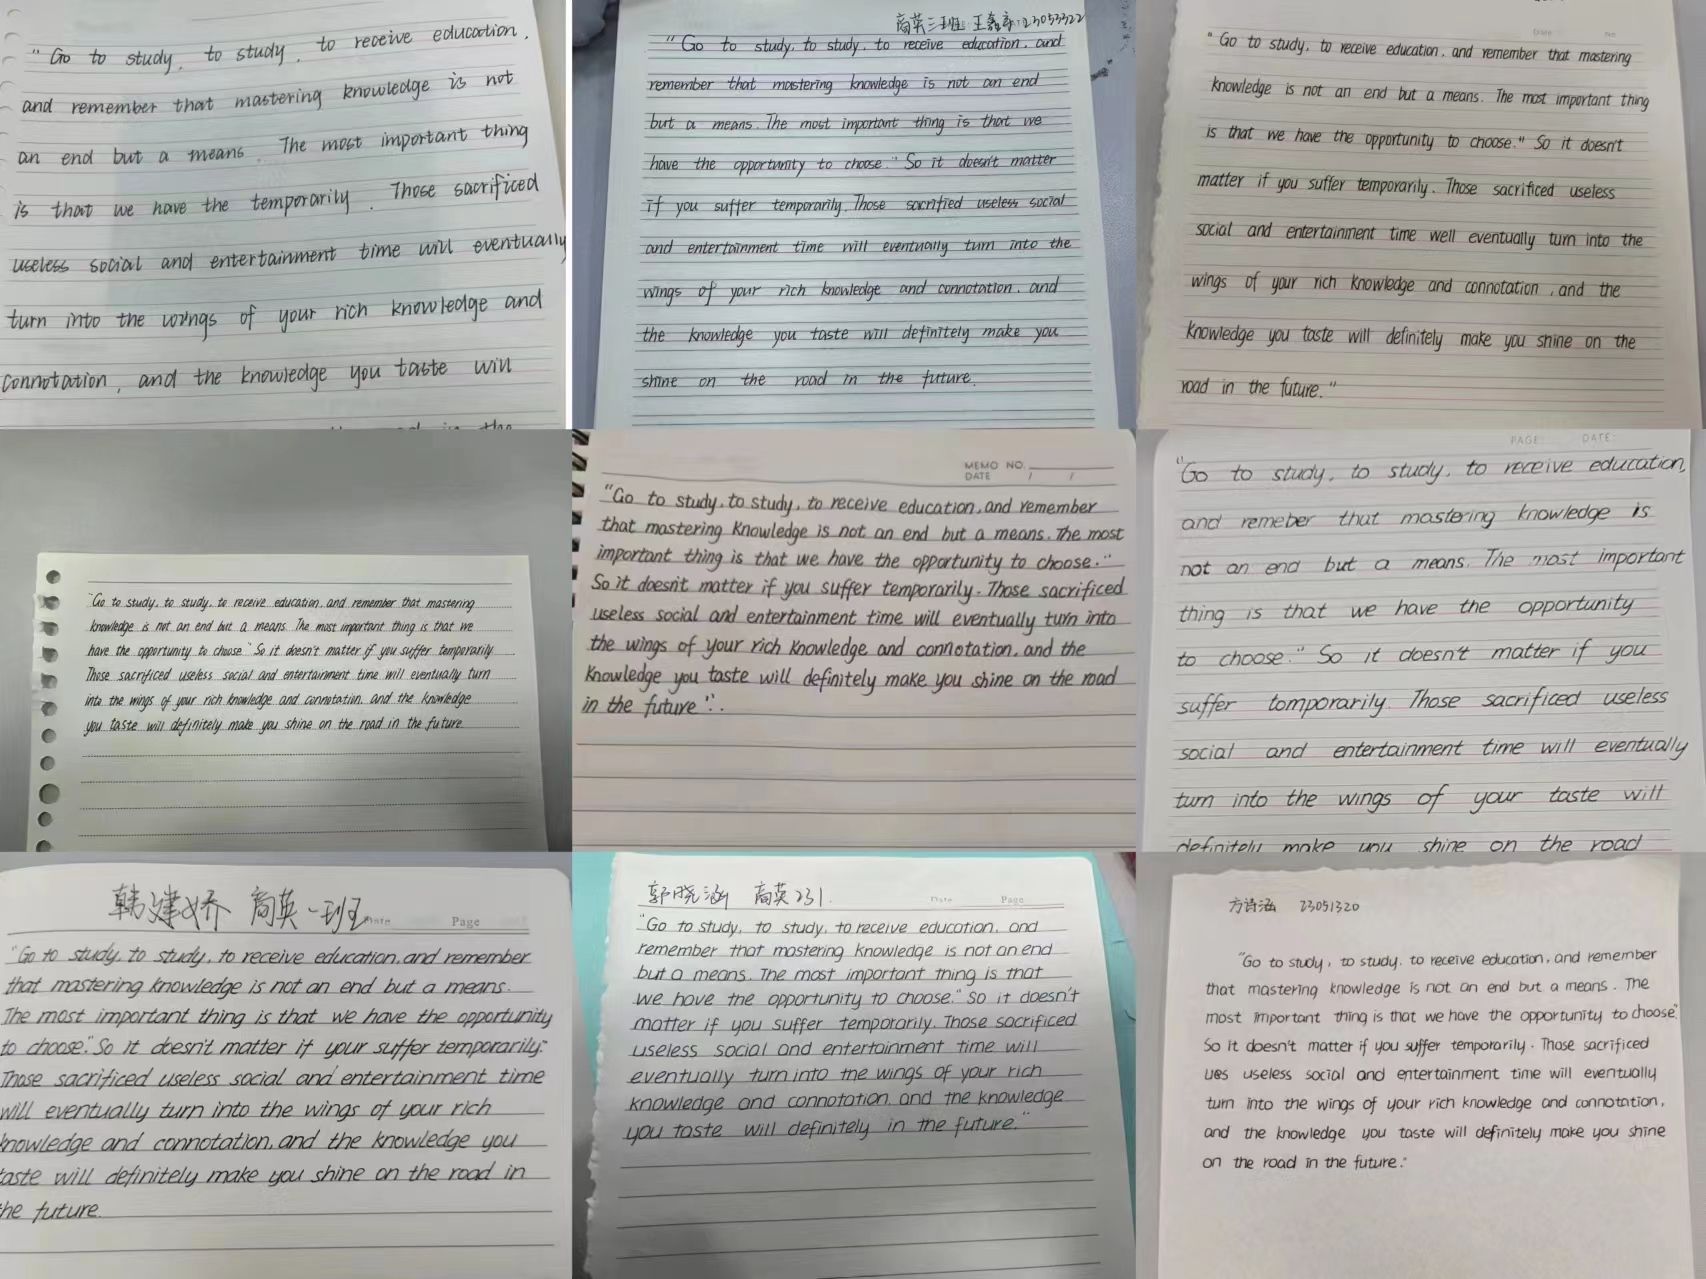 "Go to study, to study, to receive education,
and remember that mastering knowledge is not
an end but a means. The most important thing
is that we have the temporarily. Those sacrificed
useless social and entertainment time will eventually
turn into the wings of your rich knowledge and
connotation, and the knowledge you taste will
in the
商英三班 王 23053322
"Go to study, to study, to receive education, and
remember that mastering knowledge is not an end
but a means. The most important thing is that we
have the opportunity to choose." So it doesn't matter
if you suffer temporarily. Those sacrified useless social
and entertainment time will eventually turn into the
wings of your rich knowledge and connotation, and
the knowledge you taste will definitely make you
shine on the road in the future.
Date No
"Go to study, to receive education, and remember that mastering
knowledge is not an end but a means. The most important thing
is that we have the opportunity to choose." So it doesn't
matter if you suffer temporarily. Those sacrificed useless
social and entertainment time well eventually turn into the
wings of your rich knowledge and connotation, and the
knowledge you taste will definitely make you shine on the
road in the future."
"Go to study, to study, to receive education, and remember that mastering
knowledge is not an end but a means. The most important thing is that we
have the opportunity to choose." So it doesn't matter if you suffer temporarily
Those sacrificed useless social and entertainment time will eventually turn
into the wings of your rich knowledge and connotation, and the knowledge
you taste will definitely make you shine on the road in the future
MEMO NO.
DATE / /
"Go to study, to study, to receive education, and remember
that mastering Knowledge is not an end but a means. The most
important thing is that we have the opportunity to choose."
So it doesn't matter if you suffer temporarily. Those sacrificed
useless social and entertainment time will eventually turn into
the wings of your rich knowledge and connotation, and the
knowledge you taste will definitely make you shine on the road
in the future".
PAGE: DATE:
"Go to study, to study, to receive education,
and remeber that mastering knowledge is
not an end but a means. The most important
thing is that we have the opportunity
to choose." So it doesn't matter if you
suffer tomporarily. Those sacrificed useless
social and entertainment time will eventually
turn into the wings of your taste will
definitely make you shine on the road
韩建娇 商英一班 Date Page
"Go to study, to study, to receive education, and remember
that mastering knowledge is not an end but a means.
The most important thing is that we have the opportunity
to choose." So it doesn't matter if your suffer temporarily."
Those sacrificed useless social and entertainment time
will eventually turn into the wings of your rich
knowledge and connotation, and the knowledge you
taste will definitely make you shine on the road in
the future.
郭晓涵 商英231. Date Page
"Go to study, to study, to receive education, and
remember that mastering knowledge is not an end
but a means. The most important thing is that
we have the opportunity to choose." So it doesn't
matter if you suffer temporarily. Those sacrificed
useless social and entertainment time will
eventually turn into the wings of your rich
knowledge and connotation, and the knowledge
you taste will definitely in the future."
方诗涵 23051320
"Go to study, to study, to receive education, and remember
that mastering knowledge is not an end but a means. The
most important thing is that we have the opportunity to choose."
So it doesn't matter if you suffer temporarily. Those sacrificed
ues useless social and entertainment time will eventually
turn into the wings of your rich knowledge and connotation,
and the knowledge you taste will definitely make you shine
on the road in the future."